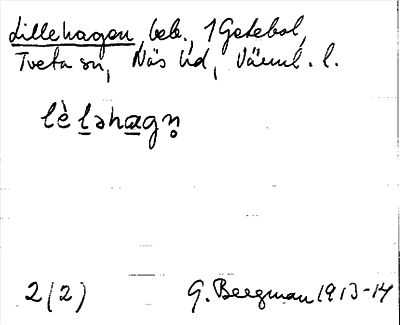 Lillehagen, beb., 1 Getebol,
Tveta sn, Näs hd, Värml. l.
lè l̲əha̲gn̥
2(2) G. Bergman 1913-14